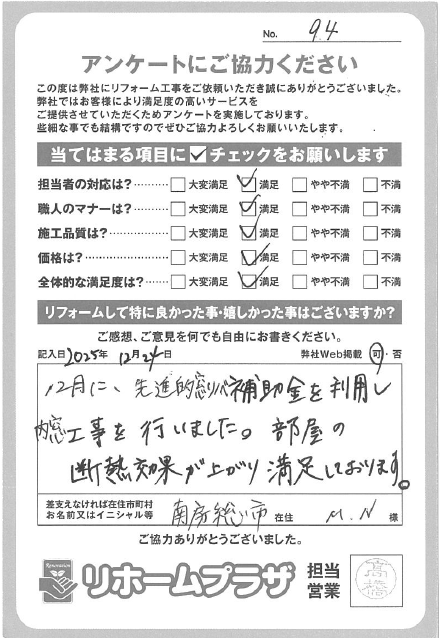 No. 94
アンケートにご協力ください
この度は弊社にリフォーム工事をご依頼いただき誠にありがとうございました。
弊社ではお客様により満足度の高いサービスを
ご提供させていただくためアンケートを実施しております。
些細な事でも結構ですのでぜひご協力よろしくお願いいたします。
当てはまる項目に✓チェックをお願いします
担当者の対応は?………… □大変満足 ☑満足 □やや不満 □不満
職人のマナーは?………… □大変満足 ☑満足 □やや不満 □不満
施工品質は?……………… □大変満足 ☑満足 □やや不満 □不満
価格は?…………………… □大変満足 ☑満足 □やや不満 □不満
全体的な満足度は?……… □大変満足 ☑満足 □やや不満 □不満
リフォームして特に良かった事・嬉しかった事はございますか?
ご感想、ご意見を何でも自由にお書きください。
記入日 2025年 12月24日 弊社Web掲載 可・否
12月に、先進的窓リノベ補助金を利用し
内窓工事を行いました。部屋の
断熱効果が上がり満足しております。
差支えなければ在住市町村
お名前又はイニシャル等 南房総市 在住 M.N 様
ご協力ありがとうございました。
Renovation リホームプラザ 担当
営業 高橋